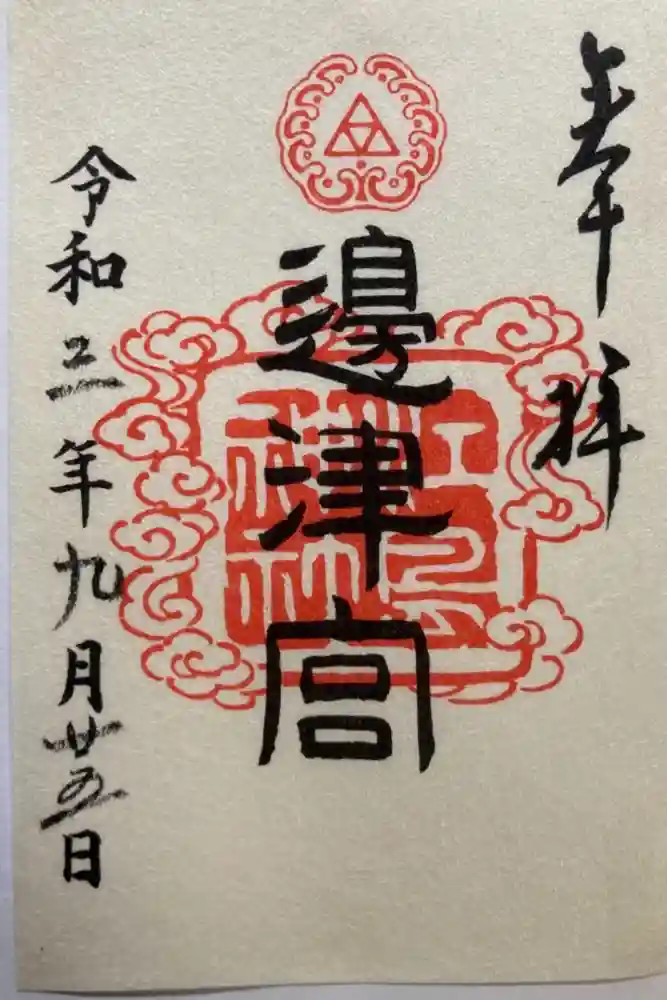 奉拝
邊津宮
令和三年九月廿五日